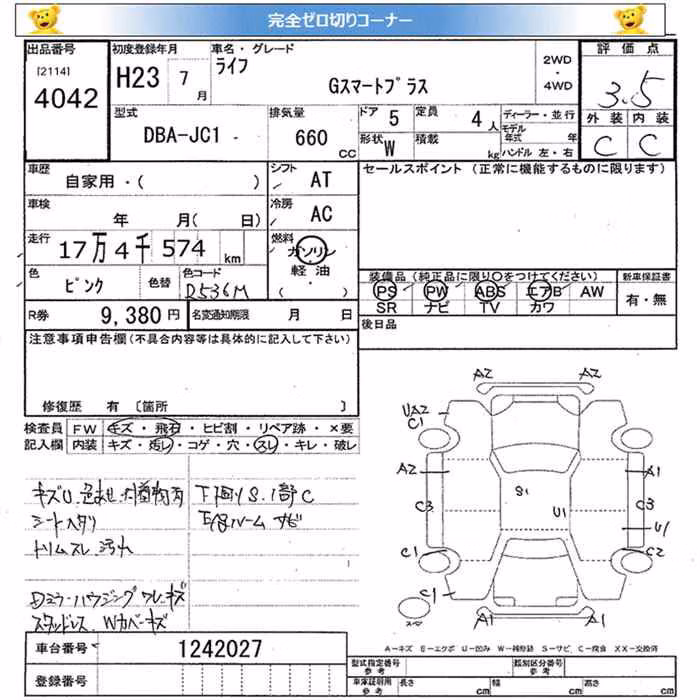 完全ゼロ切りコーナー
出品番号
[2114]
4042
初度登録年月
H23 7月
車名・グレード
ライフ
Gスマートプラス
2WD
・
4WD
評価点
3.5
外装 内装
C C
型式
DBA-JC1
排気量
660 CC
ドア 5
定員 4人
形状 W
積載 kg
ディーラー・並行
モデル年式 年
ハンドル 左・右
車歴
自家用・( )
シフト AT
セールスポイント (正常に機能するものに限ります)
車検
年 月( 日)
冷房 AC
走行
17万4千574 km
燃料
ガソリン
軽・油
( )
色 ピンク 色替
色コード
R536M
装備品(純正品に限り○をつけてください)
PS PW ABS エアB AW
SR ナビ TV カワ
新車保証書
有・無
R券 9,380円
名変通知期限 月 日
後日品
注意事項申告欄(不具合内容等は具体的に記入して下さい)
修復歴 有 〔箇所 〕
検査員記入欄
FW キズ・飛石・ヒビ割・リペア跡・×要
内装 キズ・汚レ・コゲ・穴・スレ・キレ・破レ
キズU.色あせ
下回りS.1部C
シートヘタリ
ルーム サビ
トリムスレ 汚れ
Dミラーハウジングワレ・キズ
スタッドレス.Wカバーキズ
A2 A2
UA2
C1
A2 A1
S1
C3 C3
U1 U1
C1 C2
C1
A1 A1
A-キズ E-エクボ U-凹み W-補修跡 S-サビ C-腐食 XX-交換済
車台番号 1242027
登録番号
型式指定番号
参考
類別区分番号
参考
車庫証明用
参考
長さ cm
幅 cm
高さ cm